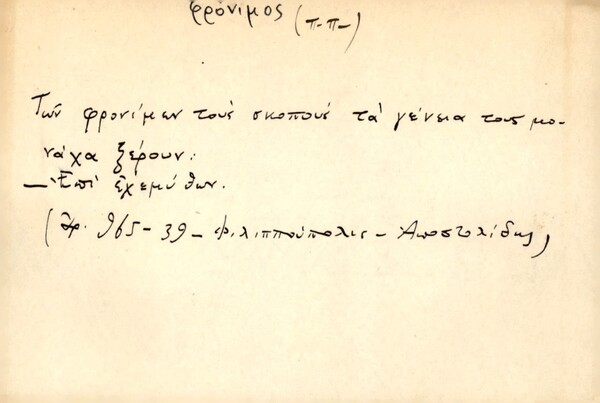 φρόνιμος (π-π-)
Τῶν φρονίμων τοὺς σκοποὺς τὰ γένεια τους μο-
νάχα ξέρουν:
— Ἐπὶ ἐχεμύθων.
965 - 39 - Φιλιππούπολις - Ἀποστολίδης)